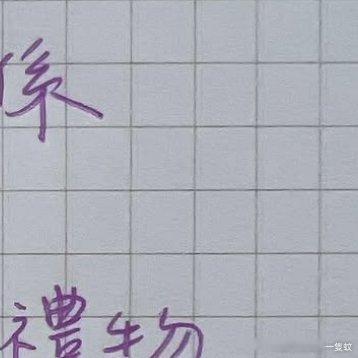 係
禮物
一隻蚊